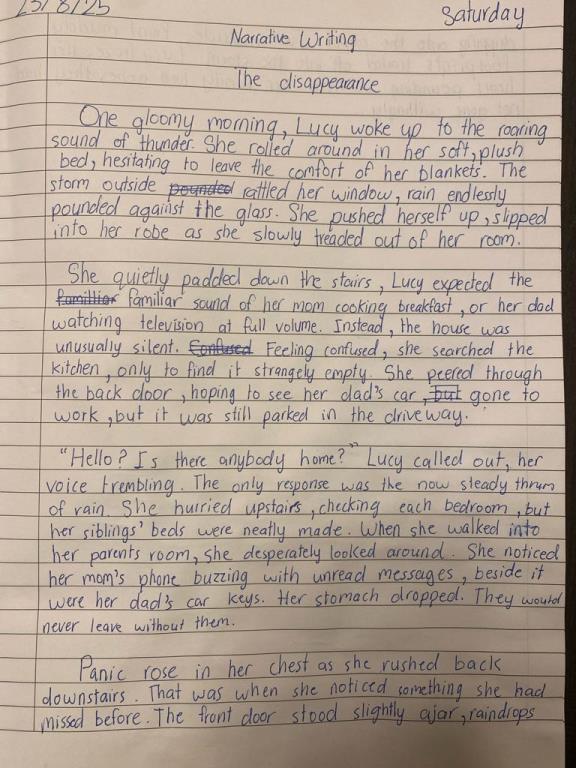 23/8/25
Saturday
Narrative Writing
The disappearance
One gloomy morning, Lucy woke up to the roaring
sound of thunder. She rolled around in her soft, plush
bed, hesitating to leave the comfort of her blankets. The
storm outside pounded rattled her window, rain endlessly
pounded against the glass. She pushed herself up, slipped
into her robe as she slowly treaded out of her room.
She quietly padded down the stairs, Lucy expected the
familliar familiar sound of her mom cooking breakfast, or her dad
watching television at full volume. Instead, the house was
unusually silent. Confused Feeling confused, she searched the
kitchen, only to find it strangely empty. She peered through
the back door, hoping to see her dad's car, but gone to
work, but it was still parked in the driveway.
"Hello? Is there anybody home?" Lucy called out, her
voice trembling. The only response was the now steady thrum
of rain. She hurried upstairs, checking each bedroom, but
her siblings' beds were neatly made. When she walked into
her parents room, she desperately looked around. She noticed
her mom's phone buzzing with unread messages, beside it
were her dad's car keys. Her stomach dropped. They would
never leave without them.
Panic rose in her chest as she rushed back
downstairs. That was when she noticed something she had
missed before. The front door stood slightly ajar, raindrops